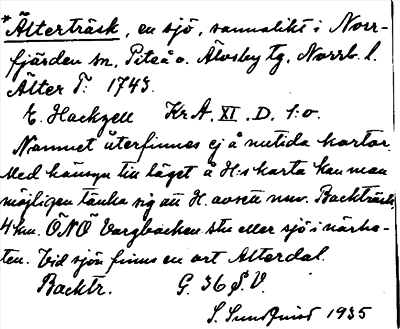 *Älterträsk, en sjö, sannolikt i Norr-
fjärden sn, Piteå o. Älvsby tg, Norrb. l.
Älter T: 1743.
E. Hackzell KrA, XI. D. 1:o.
Namnet återfinnes ej å nutida kartor.
Med hänsyn till läget å H:s karta kan man
möjligen tänka sig att H. avsett nuv. Backträsk
4 km. ÖNÖ Vargbacken stn eller sjö i närhe-
ten. Vid sjön finns en ort Alterdal.
Backtr. G. 36 S.V.
S. Sundqvist 1935